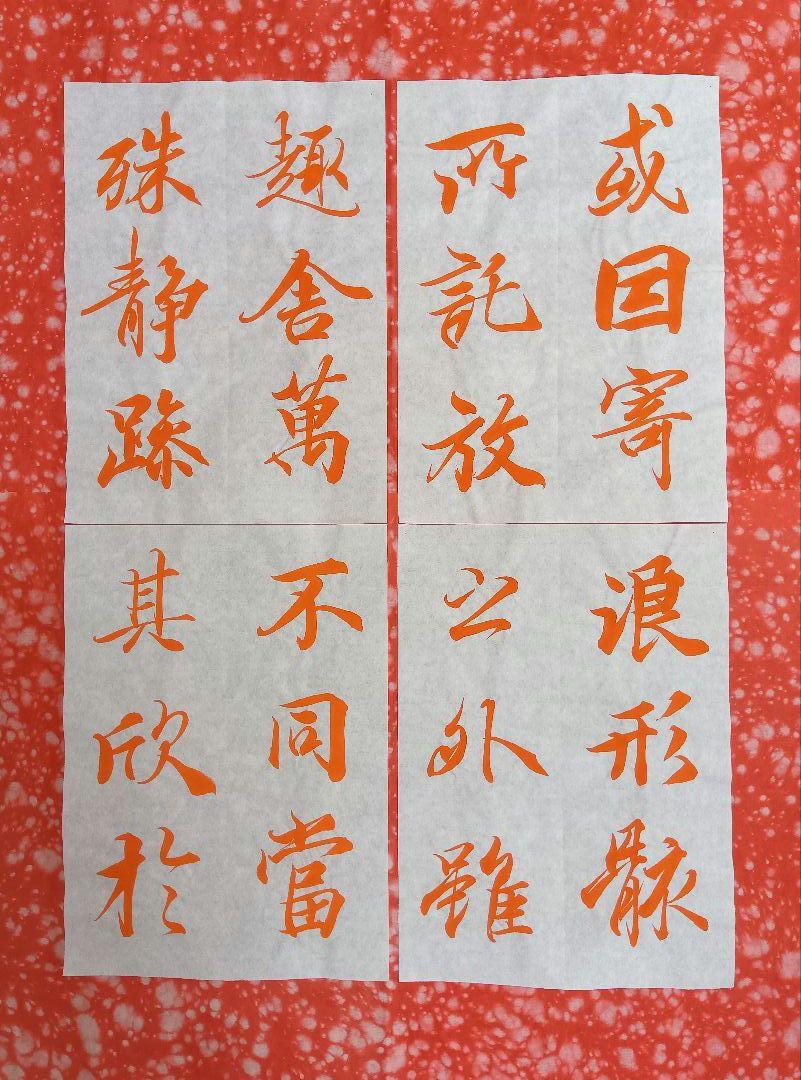 或因寄
所託放
浪形骸
之外雖
趣舍萬
殊静躁
不同當
其欣於